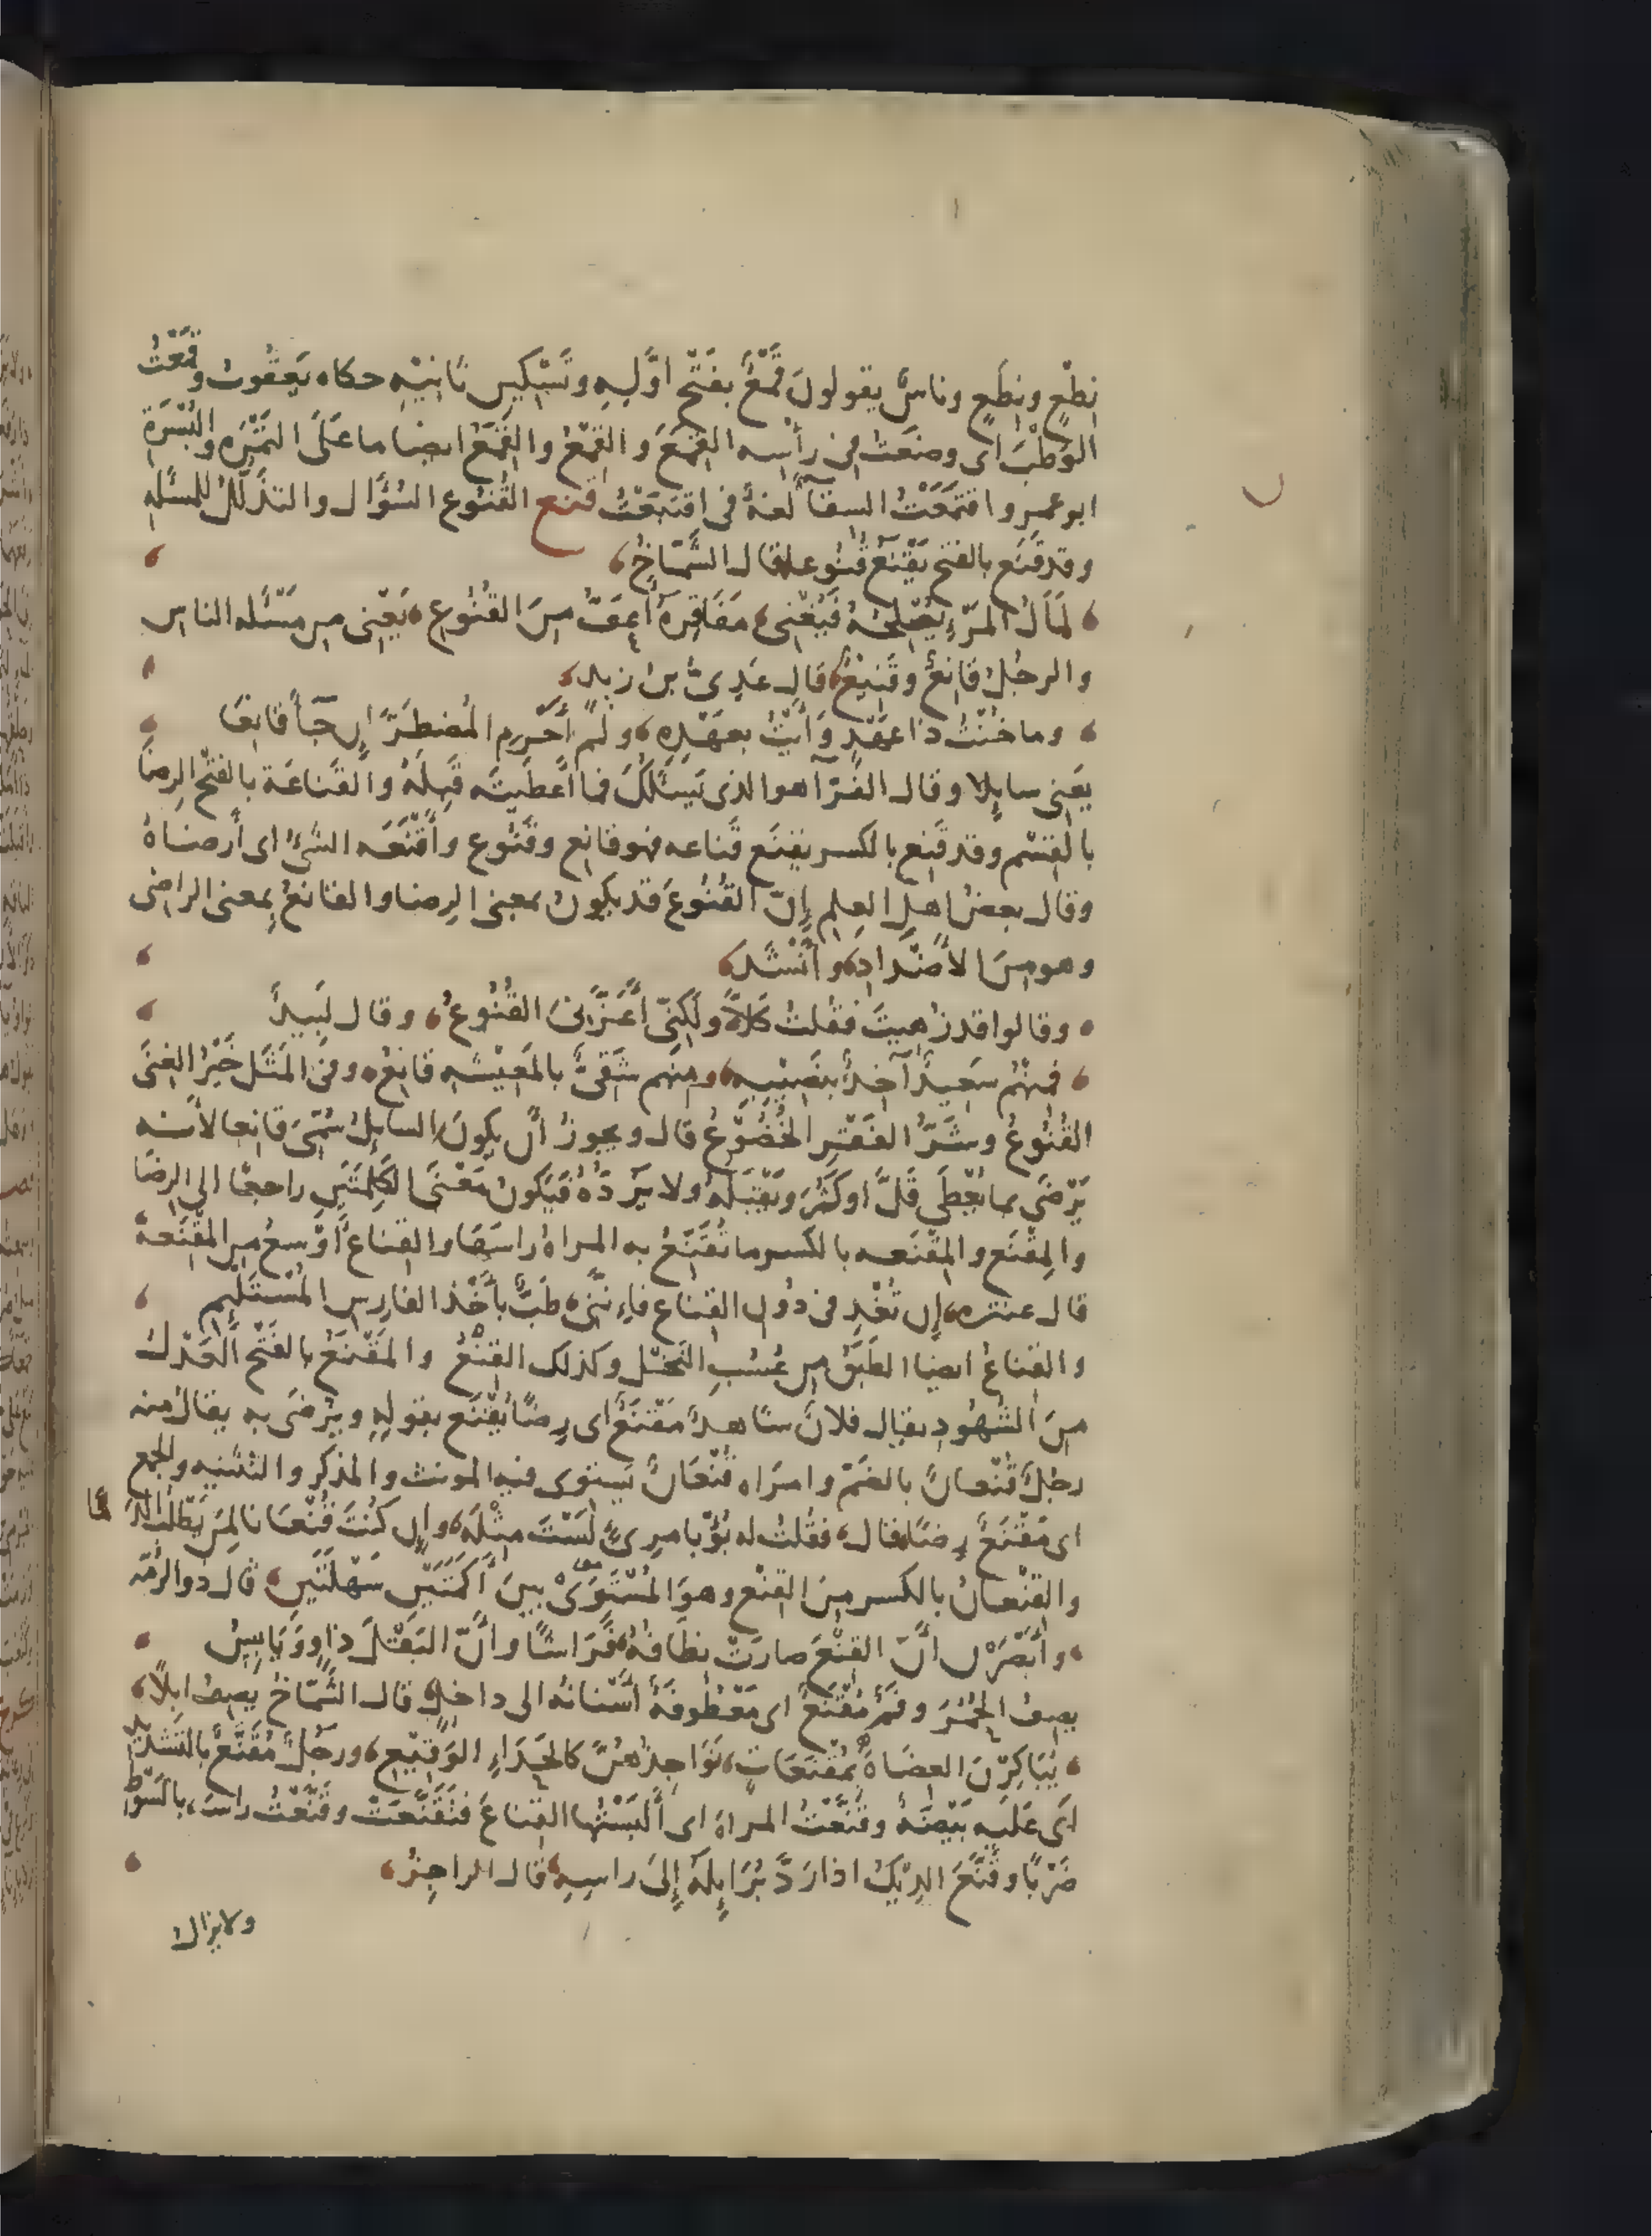 نِطْعٍ ونِطَعٍ وناسٌ يقولون قَمْعٌ بفَتْحِ اوّلِهِ وتَسْكِينِ ثانِيْهِ حكاه يَعقُوبُ وقَمَعْتُ
الوَطْبَ اى وضعَتُ فى رأسِه القِمَعَ والقِمْعُ والقِمَعُ ايضا ما عَلَى التَمْرَه والبُسْرَةِ
ابو عمرو اقتَمَعْتُ السِقآ لغةً فى اقتَبَعْتُ قنع القُنُوع السُؤَال والتذَلّلُ للمسْئَلهِ
وقد قَنَع بالفتح يَقْنَعُ قُنُوعا قال الشَّمّاخُ
لَمَالُ المَرْءِ يُصْلِحُهُ فَيُغْنى مَفَاقِرَهُ أعَفُّ مِنَ القُنُوعِ يَعْنى من مَسْئَله الناس
والرجُل قانِعٌ وقَنِيْعٌ قال عَدِىُّ بن زيد
وما خُنْتُ ذا عَهْدٍ وَأبْتُ بعَهْدِه ولم أحْرِمِ المُضْطَرَّ إن جَآ قانِعَا
يَعنى سايِلا وقال الفَرّآ هو الذى يَسْئَلُكَ فما اعطَيْتَه قَبِلَهُ والقَناعَة بالفتْح الرِضَا
بالقِسْم وقد قَنِع بالكسر يقنَع قَناعه فهو قانِع وقَنُوع وأقْنَعَه الشَىُ اى أرضَاهُ
وقال بعضُ اهلِ العِلمِ إنّ القُنُوعَ قد يكونُ بمعنى الرِضا والقانعُ بمعنى الراضى
وهو مِنَ الأضْدادِ وأنْشدَ
وقالوا قد زُهِيتَ فقُلتُ كَلّا ولَكِنّى أعَزّنِىَ القُنُوعُ وقال لَبيدٌ
فمِنْهُم سَعِيدٌ آخِذٌ بنَصِيْبِه ومنهم شَقِىٌّ بالمَعِيْشَهِ قانِعُ وفى المَثَل خَيْرُ الغِنَى
القُنُوعُ وشَرُّ الفَقْرِ الخُضُوْعُ قال ويجوزُ أن يكونَ السايلُ سُمّىَ قانِعا لأنّه
يَرْضَى بما يُعْطَى قَلَّ او كَثُرَ ويَقْبَلُهُ ولا يَرُدّهُ فيَكُونُ مَعْنَى الكَلِمَتَيْنِ راجعًا الى الرِضَا
والمِقْنَع والمِقْنَعه بالكسر ما تُقَنِّعُ به المراهُ راسَهَا والقِناعُ أوْسعُ من المِقْنَعةِ
قال عنتره إن تُغْدِفى دُونى القِناعَ فإنّنى طَبٌّ بأَخْذِ الفارِسِ المُسْتَلْئِمِ
والقِناعُ ايضا الطَبَقُ من عُسُبِ النَخْل وكذلك القِنْعُ والمَقْنَعُ بالفَتْح العَدْلُ
مِنَ الشُهُودِ يقال فلانٌ شاهدٌ مَقْنَعٌ اى رِضًا يُقْنَع بقولِهِ ويُرْضَى به يقال منه
رجُلٌ قُنْعانٌ بالضَمّ وامرَاه قُنْعَانٌ يَستوى فيه المونث والمذكر والتثنيه والجمع
اى مَقْنَعٌ رِضًا قال فقُلْتُ له بُؤْ بامرِئٍ لَسْتَ مِثْلَهُ وإن كُنْتَ قُنْعَانا لِمَن يَطْلُبُ الدَمَا
والقِنْعانُ بالكسر مِنَ القِنْع وهوَ المُسْتَوَى بينَ أكَمَتَيْنِ سَهْلَتَيْنِ قال ذو الرُمّه
وأبْصَرْنَ أنَّ القِنْعَ صارَتْ نِطَافُهُ فَرَاشًا وأنَّ البَقْلَ ذاوٍ ويَابِسُ
يصِفُ الحُمُرَ وفَمٌ مُقْنَعٌ اى مَعْطُوفَةٌ أسْنانُه الى داخِلٍ قال الشَمّاخُ يَصِفُ ابِلاً
يُبَاكِرْنَ العِضَاهَ بمُقْنَعَاتٍ نَوَاجِذُهُنَّ كالحَدَاءِ الوَقِيْعِ ورجُلٌ مُقَنَّعٌ بالتَشْدِيدِ
اى عَلَيهِ بَيْضَهٌ وقَنَّعْتُ المراهَ اى ألبَسْتُها القِناعَ فتَقَنَّعَتْ وقَنَّعْتُ راسَه بالسَوْطِ
ضَرْبًا وقَنَّعَ الدِيْكُ اذا رَدَّ بُرَايِلَهُ إلَى راسِهِ قال الراجِزُ
ولا يزال